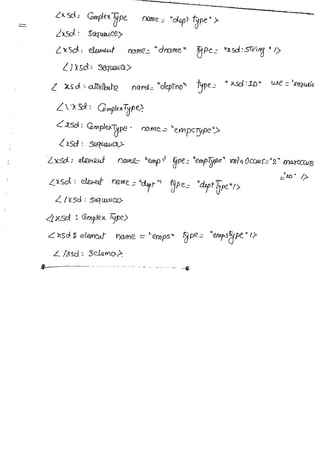 <xsd: ComplexType name = "dept type">
<xsd: Sequence>
<xsd: element name= "dname" type= "xsd:string" />
</xsd: Sequence>
< xsd: attribute name= "deptno" type= "xsd:ID" use = "require
<\xsd: ComplexType>
<xsd: ComplexType name= "empsType">
<xsd: Sequence>
<xsd: element name= "emp" type= "empType" min Occurs="2" maxoccurs
="10" />
<xsd: element name = "dept" type= "dept Type"/>
</xsd: Sequence>
</xsd : Complex Type>
<xsd: element name = "emps" type= "empstype" />
</xsd: Schema>